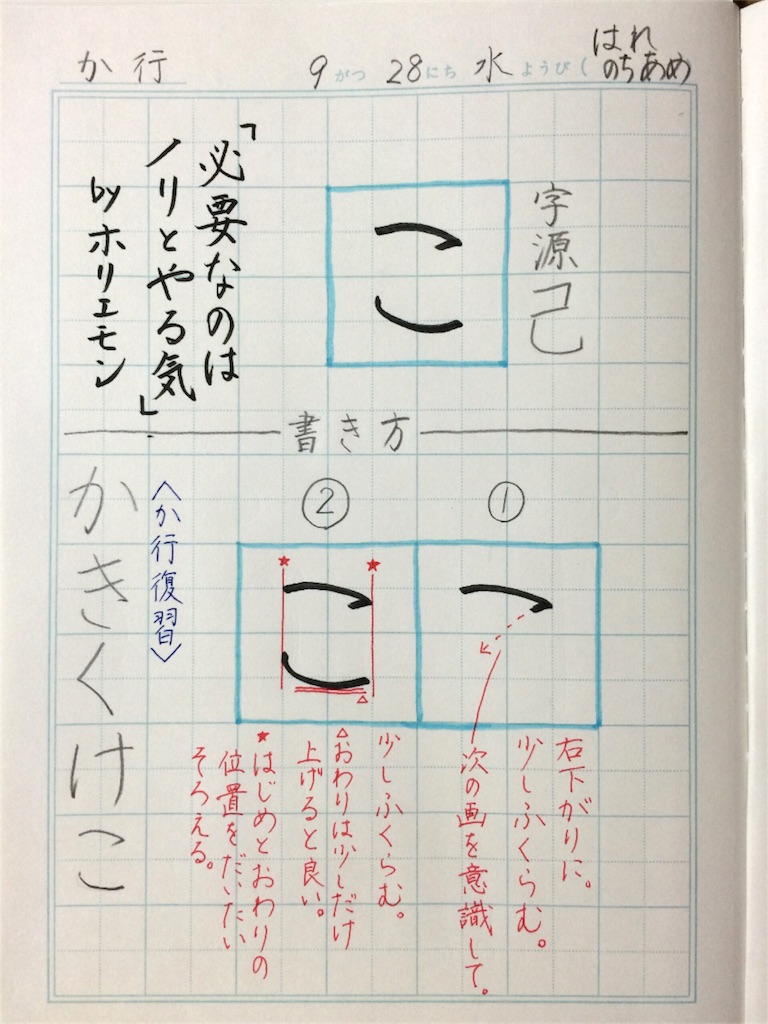 か行 9がつ28にち水ようび(はれ
のちあめ
字源己
こ
「必要なのは
ノリとやる気」
byホリエモン
書き方
①
右下がりに。
少しふくらむ。
次の画を意識して。
②
こ
少しふくらむ。
△おわりは少しだけ
上げると良い。
★はじめとおわりの
位置をだいたい
そろえる。
〈か行復習〉
かきくけこ